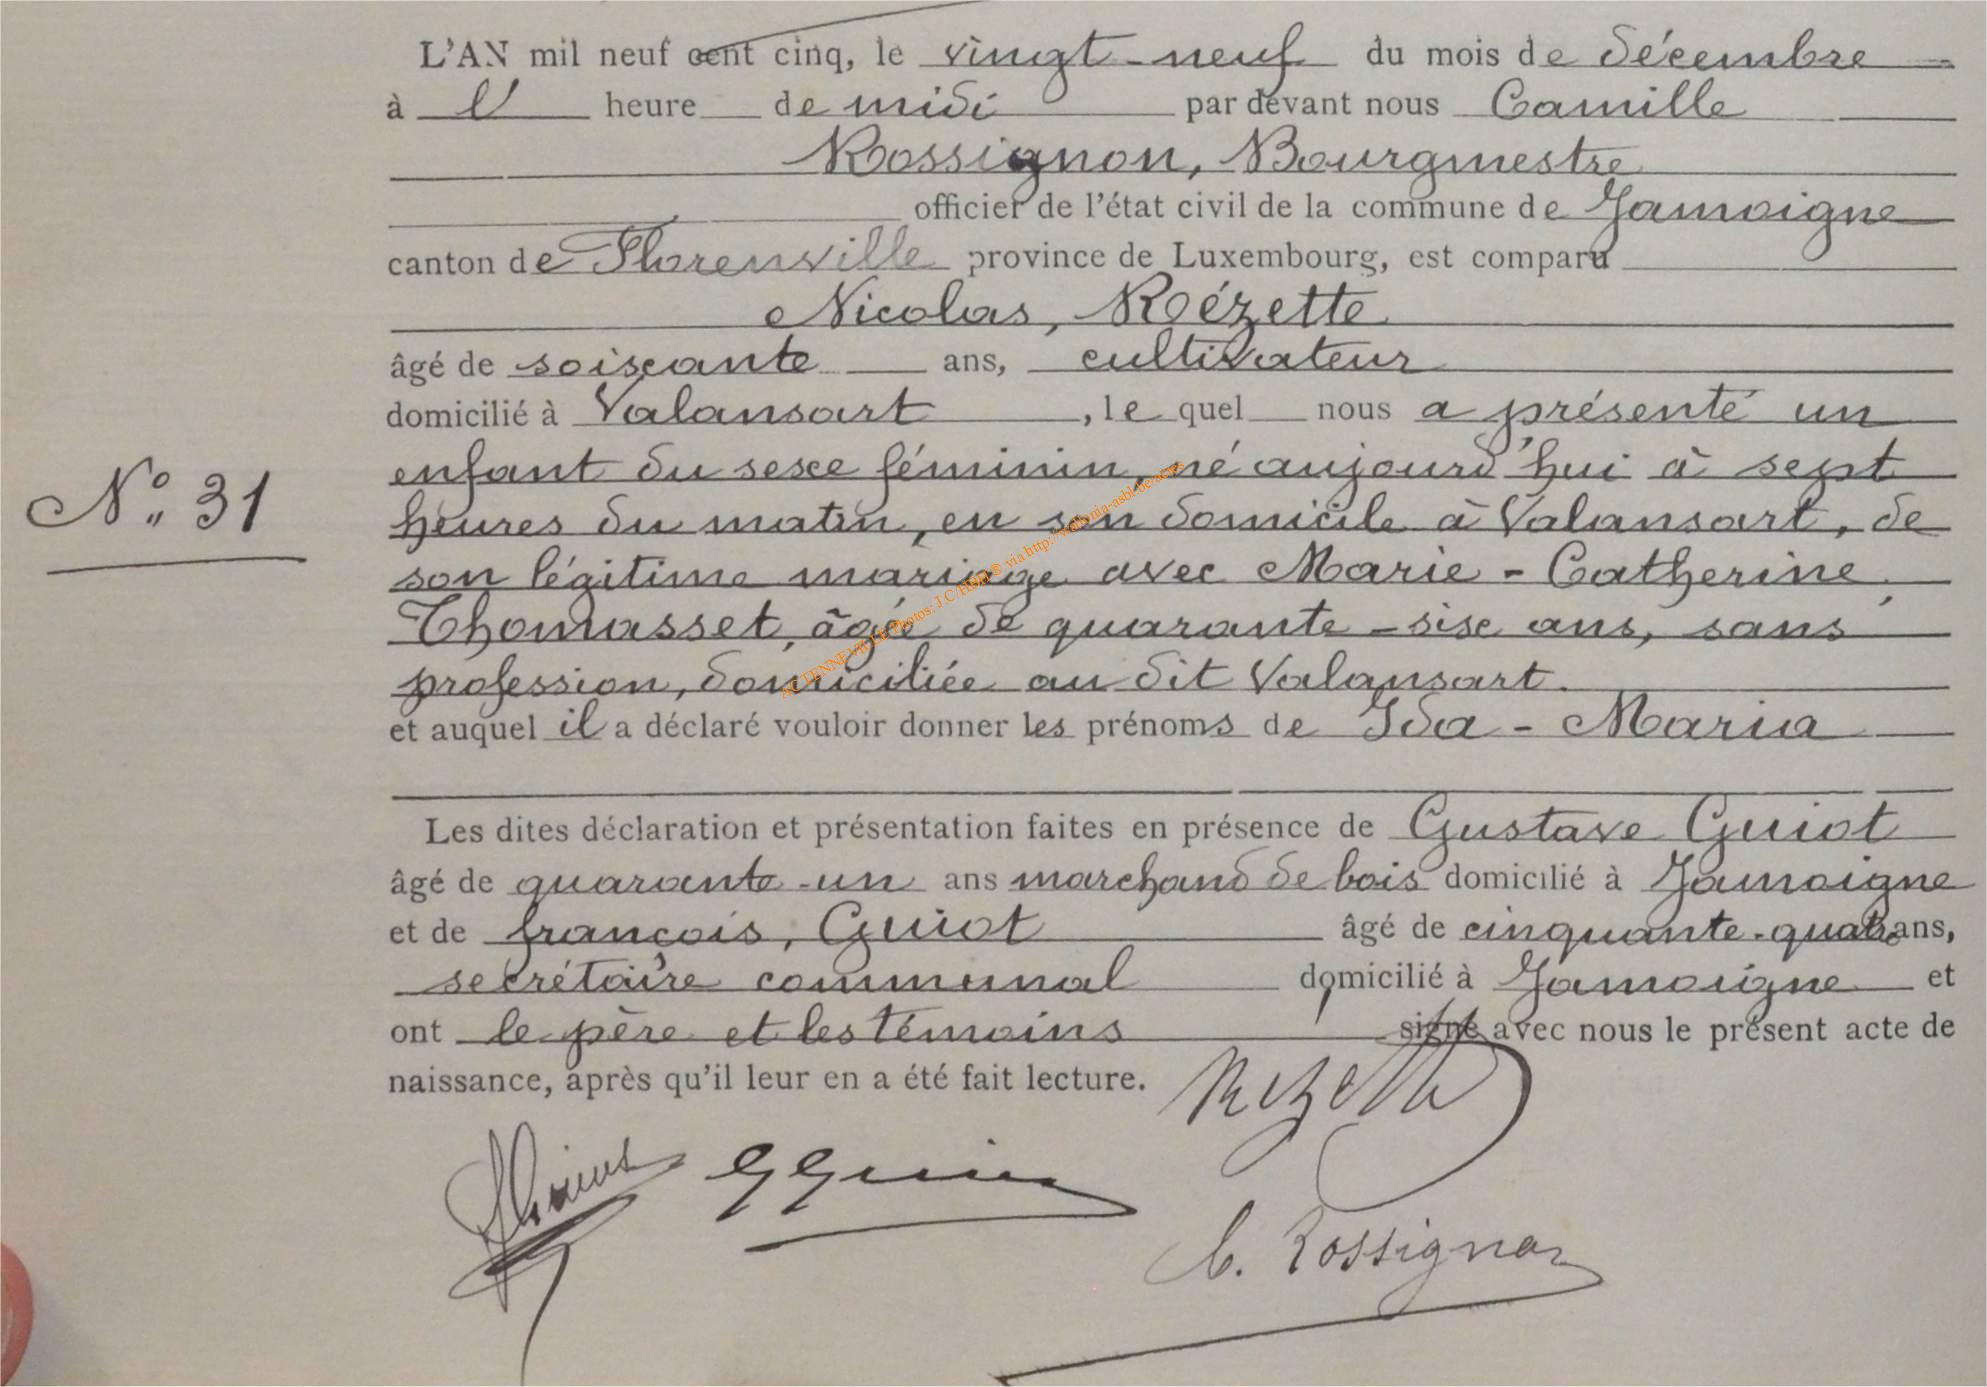 L'AN mil neuf cent cinq, le vingt-neuf du mois de décembre
à l' heure de midi par devant nous Camille
Rossignon, Bourgmestre
officier de l'état civil de la commune de Jamoigne
canton de Florenville province de Luxembourg, est comparu
Nicolas, Rézette
âgé de soixante ans, cultivateur
domicilié à Valansart, le quel nous a présenté un
enfant du sexe féminin, né aujourd'hui à sept
heures du matin, en son domicile à Valansart, de
N° 31
son légitime mariage avec Marie-Catherine
Thomasset, âgé de quarante-six ans, sans
profession, domiciliée au dit Valansart.
et auquel il a déclaré vouloir donner les prénoms de Ida-Maria
Les dites déclaration et présentation faites en présence de Gustave Guiot
âgé de quarante-un ans marchand de bois domicilié à Jamoigne
et de françois, Guiot âgé de cinquante-quatre ans,
secrétaire communal domicilié à Jamoigne et
ont le père et les témoins signé avec nous le présent acte de
naissance, après qu'il leur en a été fait lecture.
Rezette
G Guiot
C. Rossignon